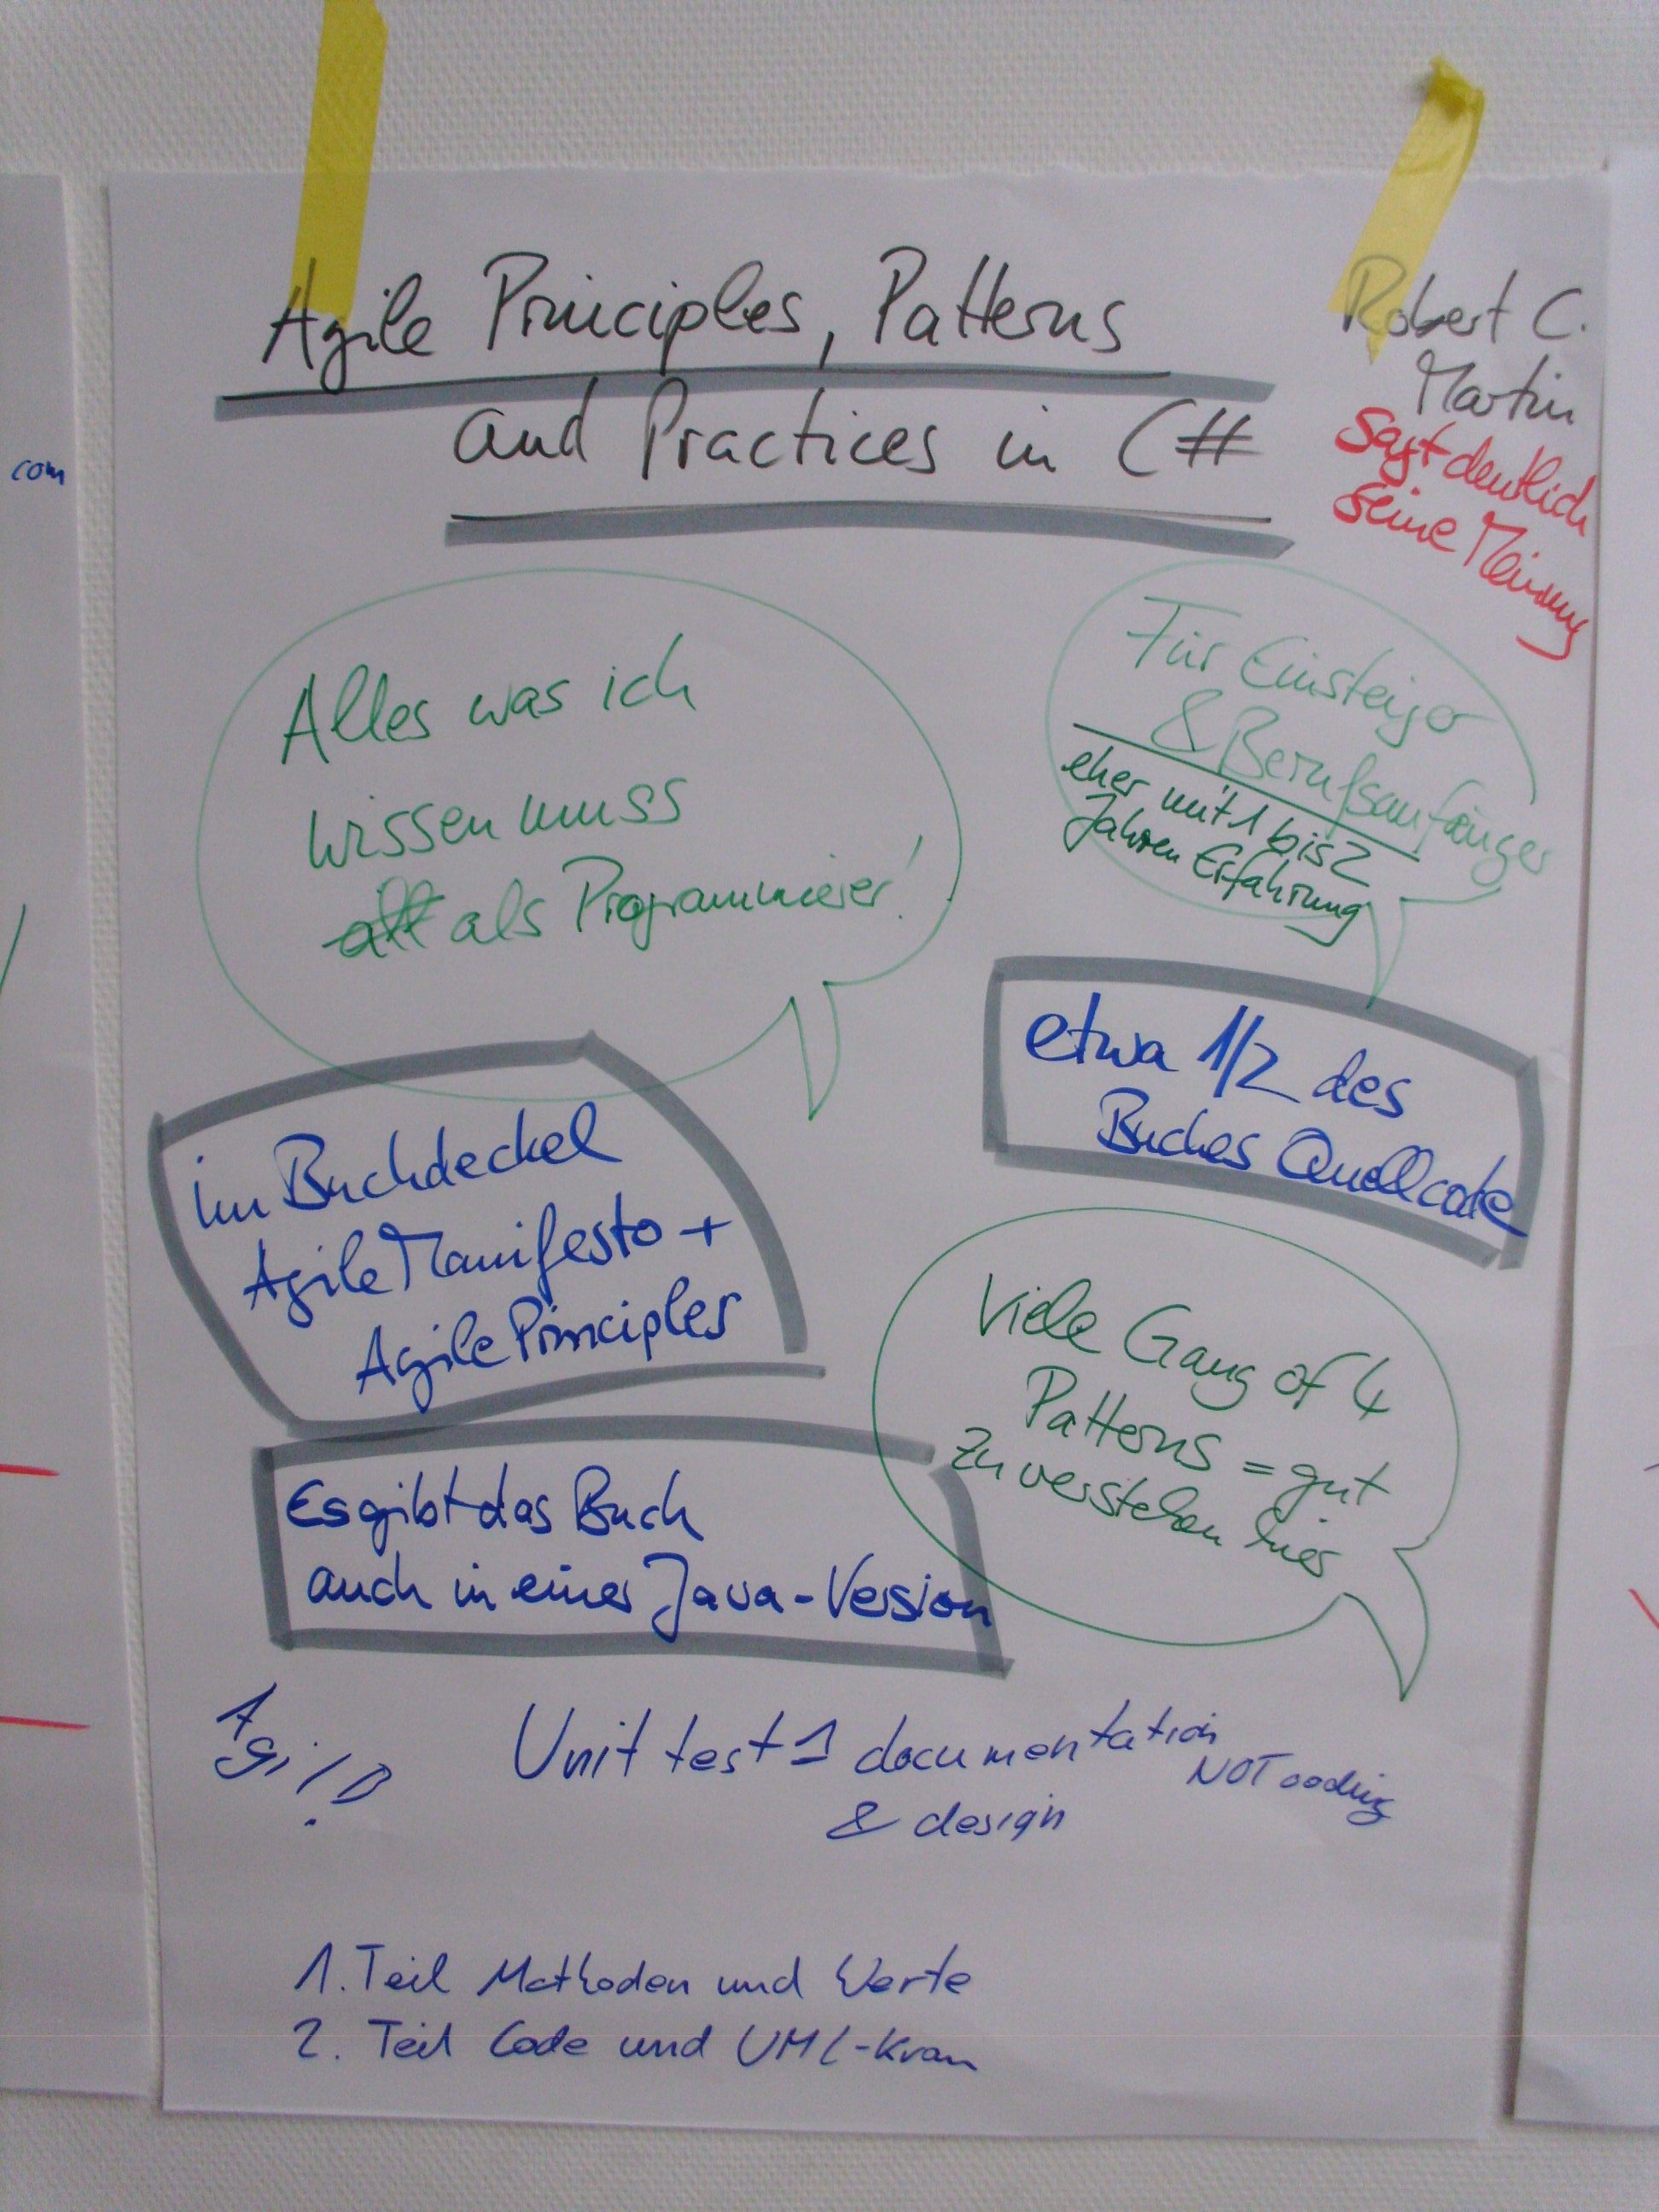 Agile Principles, Patterns
and Practices in C#
Robert C.
Martin
sagt deutlich
seine Meinung
Alles was ich
wissen muss
als Programmierer!
Für Einsteiger
& Berufsanfänger
eher mit 1 bis 2
Jahren Erfahrung
etwa 1/2 des
Buches Quellcode
im Buchdeckel
Agile Manifesto +
Agile Principles
Viele Gang of 4
Patterns = gut
zu verstehen hier
Es gibt das Buch
auch in einer Java-Version
Unit test documentation
NOT coding
& design
1. Teil Methoden und Werte
2. Teil Code und UML-Kram
com